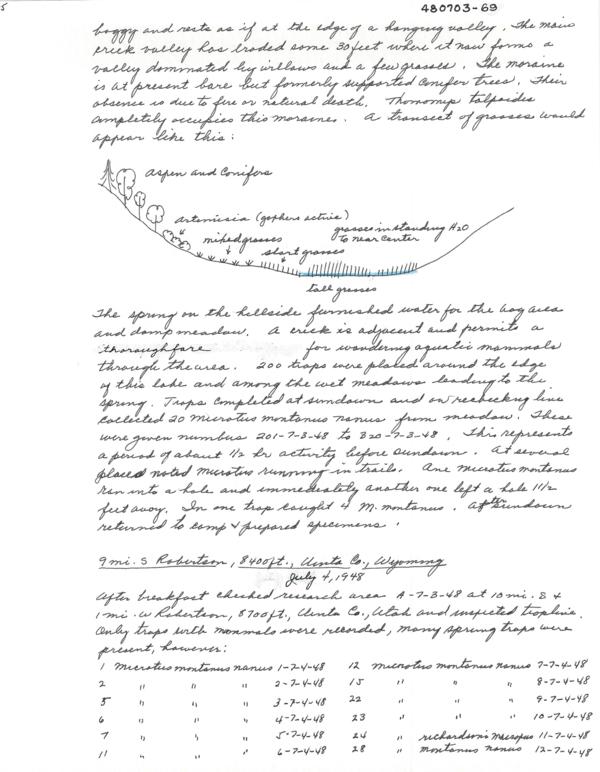 5
480703-69
boggy and rests as if at the edge of a hanging valley. The main
crick valley has eroded some 30 feet where it now forms a
valley dominated by willows and a few grasses. The moraine
is at present bare but formerly supported Conifer trees. Their
absence is due to fire or natural death. Thomomys talpoides
completely occupies this moraines. A transect of grasses would
appear like this:
aspen and Conifers
artemisia (gophers active)
mixed grasses
short grasses
grasses in standing H2O
to near center
tall grasses
The spring on the hillside furnished water for the bog area
and damp meadow. A crick is adjacent and permits a
thoroughfare for wandering aquatic mammals
through the area. 200 traps were placed around the edge
of this lake and among the wet meadows leading to the
spring. Traps completed at sundown and on rechecking line
collected 20 Microtus montanus nanus from meadow. These
were given numbers 201-7-3-48 to 220-7-3-48. This represents
a period of about 1/2 hr activity before sundown. At several
places noted Microtus running in trails. One microtus montanus
ran into a hole and immediately another one left a hole 1 1/2
feet away. In one trap caught 4 M. montanus. After sundown
returned to camp & prepared specimens.
9 mi. S Robertson, 8400 ft., Uinta Co., Wyoming
July 4, 1948
After breakfast checked research area A-7-3-48 at 10 mi. S &
1 mi. W Robertson, 8700 ft., Uinta Co., Utah and inspected trapline.
Only traps with mammals were recorded, many sprung traps were
present, however:
1 Microtus montanus nanus 1-7-4-48 12 microtus montanus nanus 7-7-4-48
2 " " " 2-7-4-48 15 " " " 8-7-4-48
5 " " " 3-7-4-48 22 " " " 9-7-4-48
6 " " " 4-7-4-48 23 " " " 10-7-4-48
7 " " " 5-7-4-48 24 " richardsoni macropus 11-7-4-48
11 " " " 6-7-4-48 28 " montanus nanus 12-7-4-48